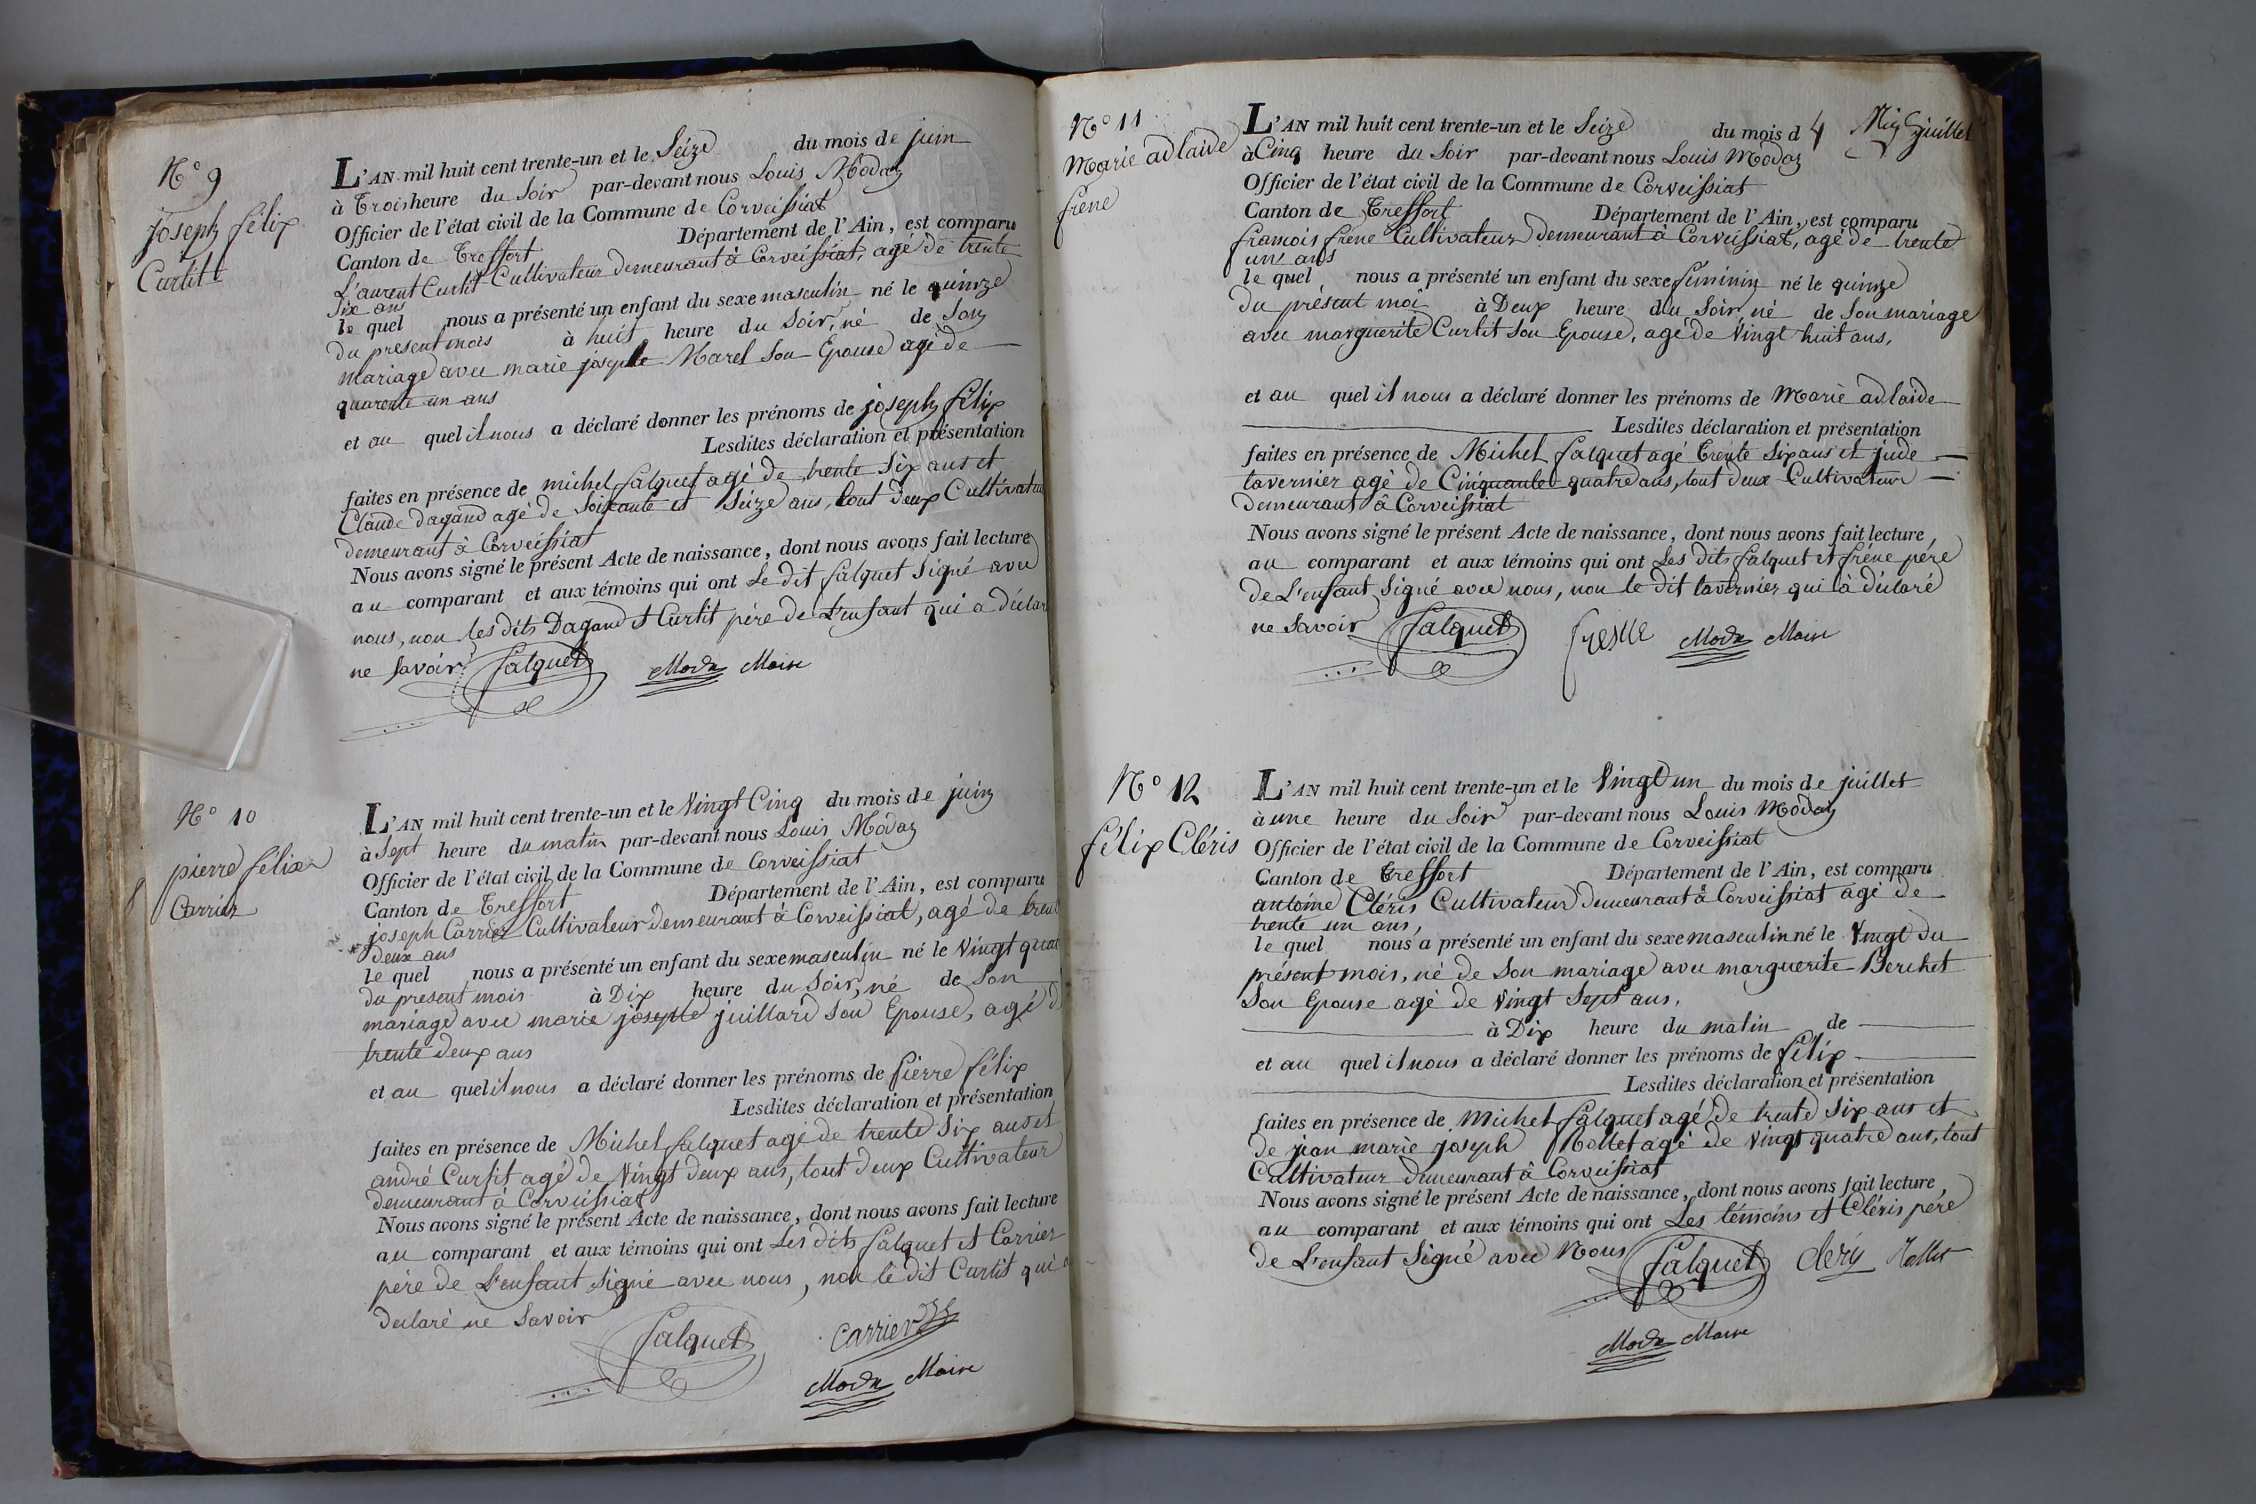 N° 9
joseph félix
Curtit
L'AN mil huit cent trente-un et le Seize du mois de juin
à Trois heure du Soir par-devant nous Louis Modas
Officier de l'état civil de la Commune de Corveissiat
Canton de Treffort Département de l'Ain, est comparu
L'aurent Curtit Cultivateur demeurant à Corveissiat, agé de trente
six ans
le quel nous a présenté un enfant du sexe masculin né le quinze
du present mois à huit heure du Soir, né de Son
mariage avec marie josephe Marel Son Epouse agé de
quarente un ans
et au quel il nous a déclaré donner les prénoms de joseph félix
Lesdites déclaration et présentation
faites en présence de michel falquet agé de trente Six ans et
Claude dagand agé de Soixante et Seize ans, tout deux Cultivateur
demeurant à Corveissiat
Nous avons signé le présent Acte de naissance, dont nous avons fait lecture
au comparant et aux témoins qui ont Le dit falquet Signé avec
nous, non les dits Dagand et Curtit père de L'enfant qui a déclaré
ne Savoir falquet Modas Maire
N° 10
pierre félix
Carrier
L'AN mil huit cent trente-un et le Vingt Cinq du mois de juin
à Sept heure du matin par-devant nous Louis Modas
Officier de l'état civil de la Commune de Corveissiat
Canton de Treffort Département de l'Ain, est comparu
joseph Carrier Cultivateur demeurant à Corveissiat, agé de trente
deux ans
le quel nous a présenté un enfant du sexe masculin né le Vingt quatre
du present mois à Dix heure du Soir, né de Son
mariage avec marie josephe juillard Son Epouse, agé de
trente deux ans
et au quel il nous a déclaré donner les prénoms de pierre félix
Lesdites déclaration et présentation
faites en présence de Michel falquet agé de trente Six ans et
andré Curtit agé de Vingt deux ans, tout deux Cultivateur
demeurant à Corveissiat
Nous avons signé le présent Acte de naissance, dont nous avons fait lecture
au comparant et aux témoins qui ont Les dits falquet et Carrier
père de L'enfant Signé avec nous, non le dit Curtit qui a
declaré ne Savoir
falquet Carrier
Modas Maire
N° 11
Marie adlaide
frène
L'AN mil huit cent trente-un et le Seize du mois d juillet
à Cinq heure du Soir par-devant nous Louis Modas
Officier de l'état civil de la Commune de Corveissiat
Canton de Treffort Département de l'Ain, est comparu
francois frène Cultivateur demeurant à Corveissiat, agé de trente
un ans
le quel nous a présenté un enfant du sexe féminin né le quinze
du présent moi à Deux heure du Soir, né de Son mariage
avec marguerite Curtit Son Epouse, agé de Vingt huit ans,
et au quel il nous a déclaré donner les prénoms de Marie adlaide
Lesdites déclaration et présentation
faites en présence de Michel falquet agé Trente Six ans et jude
tavernier agé de Cinquante quatre ans, tout deux Cultivateur
demeurant à Corveissiat
Nous avons signé le présent Acte de naissance, dont nous avons fait lecture
au comparant et aux témoins qui ont Les dits falquet et frène père
de L'enfant Signé avec nous, non le dit tavernier qui là déclaré
ne Savoir falquet fresne Modas Maire
N° 12
félix Cléris
L'AN mil huit cent trente-un et le Vingt un du mois de juillet
à une heure du Soir par-devant nous Louis Modas
Officier de l'état civil de la Commune de Corveissiat
Canton de Treffort Département de l'Ain, est comparu
antoine Cléris Cultivateur demeurant à Corveissiat agé de
trente un ans,
le quel nous a présenté un enfant du sexe masculin né le Vingt du
présent mois, né de Son mariage avec marguerite Berchet
Son Epouse agé de Vingt Sept ans,
à Dix heure du matin de
et au quel il nous a déclaré donner les prénoms de félix
Lesdites déclaration et présentation
faites en présence de Michel falquet agé de trente Six ans et
de jean marie joseph Mollet agé de Vingt quatre ans, tout
Cultivateur demeurant à Corveissiat
Nous avons signé le présent Acte de naissance, dont nous avons fait lecture
au comparant et aux témoins qui ont Les témoins et Cléris père
de L'enfant Signé avec Nous falquet cleris Mollet
Modas Maire